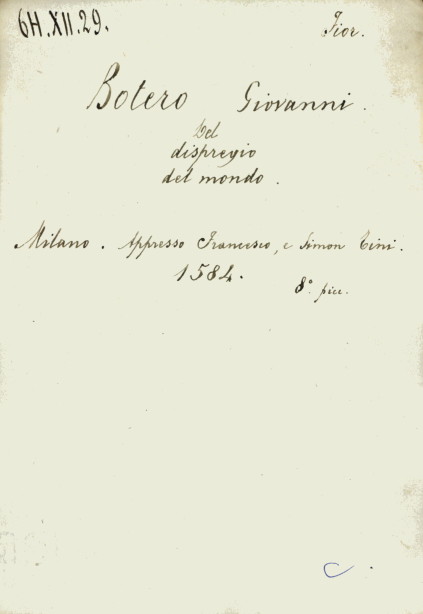 6H.XII.29.
Fior.
Botero Giovanni.
Del
dispregio
del mondo.
Milano. Appresso Francesco, e Simon Tini.
1584.
8° picc.
C